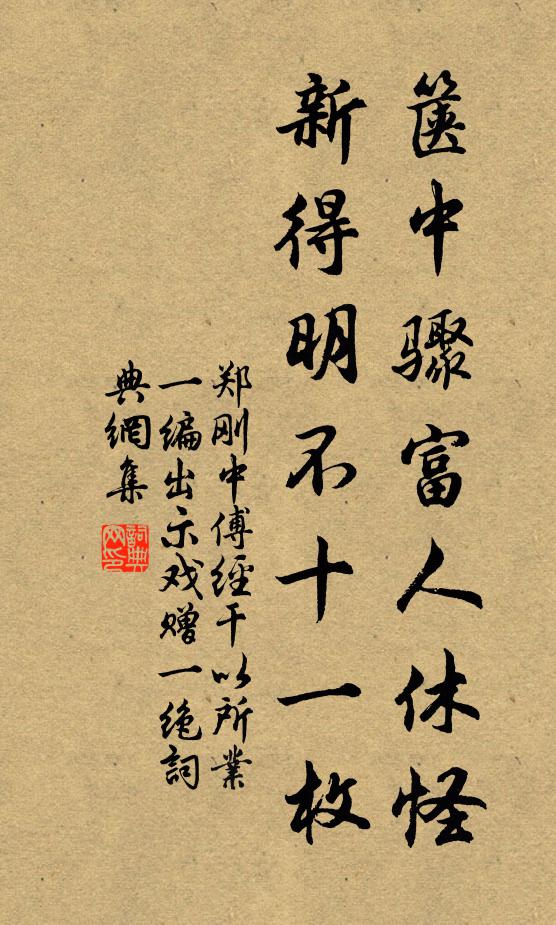 篋中骤富人休怪
新得明不十一枚
郑刚中傅經干以所業
一编出示戏赠一绝詞
典網集
詞典
网印